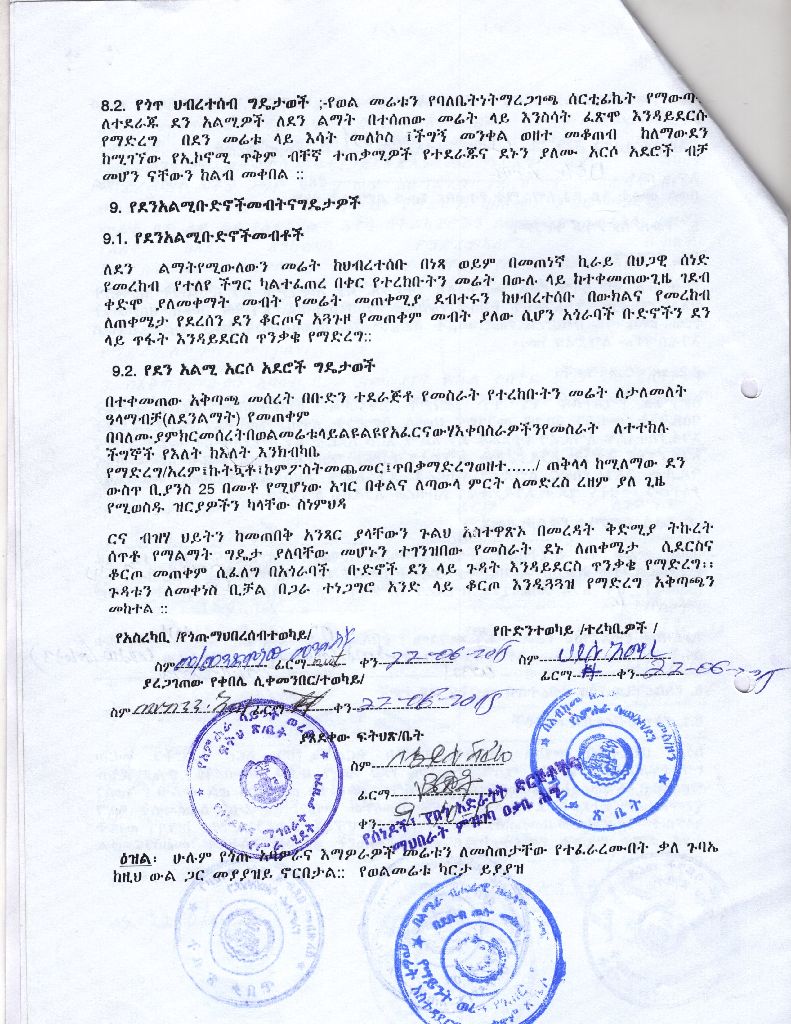 8.2. የጎጥ ህብረተሰብ ግዴታወች ;-የወል መሬቱን የባለቤትነትማረጋገጫ ሰርቲፊኬት የማውጣ
ለተደራጁ ደን አልሚዎች ለደን ልማት በተሰጠው መሬት ላይ እንስሳት ፈጽሞ እንዳይደርሱ
የማድረግ በደን መሬቱ ላይ እሳት መለኮስ ፤ችግኝ መንቀል ወዘተ መቆጠብ ከለማውደን
ከሚገኘው የኢኮኖሚ ጥቅም ብቸኛ ተጠቃሚዎች የተደራጁና ደኑን ያለሙ አርሶ አደሮች ብቻ
መሆን ናቸውን ከልብ መቀበል ፡፡
9. የደንአልሚቡድኖችመብትናግዴታዎች
9.1. የደንአልሚቡድኖችመብቶች
ለደን ልማትየሚውለውን መሬት ከህብረተሰቡ በነጻ ወይም በመጠነኛ ኪራይ በህጋዊ ሰነድ
የመረከብ የተለየ ችግር ካልተፈጠረ በቀር የተረከቡትን መሬት በውሉ ላይ ከተቀመጠውጊዜ ገደብ
ቀድሞ ያለመቀማት መብት የመሬት መጠቀሚያ ደብተሩን ከህብረተሰቡ በውክልና የመረከብ
ለጠቀሜታ የደረሰን ደን ቆርጦና አጓጉዞ የመጠቀም መብት ያለው ሲሆን አጎራባች ቡድኖችን ደን
ላይ ጥፋት እንዳይደርስ ጥንቃቄ የማድረግ፡፡
9.2. የደን አልሚ አርሶ አደሮች ግዴታወች
በተቀመጠው አቅጣጫ መሰረት በቡድን ተደራጅቶ የመስራት የተረከቡትን መሬት ለታለመለት
ዓላማብቻ(ለደንልማት) የመጠቀም
በባለሙያምክርመሰረትበወልመሬቱላይልዩልዩየአፈርናውሃእቀባስራዎችንየመስራት ለተተከሉ
ችግኞች የእለት ከእለት እንክብካቤ
የማድረግ/አረም፤ኩትኳቶ፤ኮምፖስትመጨመር፤ጥበቃማድረግወዘተ....../ ጠቅላላ ከሚለማው ደን
ውስጥ ቢያንስ 25 በመቶ የሚሆነው አገር በቀልና ለጣውላ ምርት ለመድረስ ረዘም ያለ ጊዜ
የሚወስዱ ዝርያዎችን ካላቸው ስነምህዳ
ርና ብዝሃ ህይትን ከመጠበቅ አንጻር ያላቸውን ጉልህ አስተዋጽኦ በመረዳት ቅድሚያ ትኩረት
ሰጥቶ የማልማት ግዴታ ያለባቸው መሆኑን ተገንዝበው የመስራት ደኑ ለጠቀሜታ ሲደርስና
ቆርጦ መጠቀም ሲፈለግ በአጎራባች ቡድኖች ደን ላይ ጉዳት እንዳይደርስ ጥንቃቄ የማድረግ፡፡
ጉዳቱን ለመቀነስ ቢቻል በጋራ ተነጋግሮ አንድ ላይ ቆርጦ እንዲጓጓዝ የማድረግ አቅጣጫን
መከተል ፡፡
የአስረካቢ /የጎጡማህበረሰብተወካይ/ የቡድንተወካይ /ተረካቢዎች /
ስም ፊርማ ቀን 22-06-2018 ስም
ያረጋገጠው የቀበሌ ሊቀመንበር/ተወካይ/ ፊርማ ቀን 22-06-
ስም ፊርማ ቀን 22-06-2018
ያጸደቀው ፍትህጽ/ቤት
ስም
ፊርማ
ቀን
የሰነዶች፣ የበጎ አድራጎት ድርጅቶችና
ማህበራት ምዝገባ ዐቃቤ ህግ
ዕዝል፡ ሁሉም የጎጡ አባዎራና እማዎራዎች መሬቱን ለመስጠታቸው የተፈራረሙበት ቃለ ጉባኤ
ከዚህ ውል ጋር መያያዝይ ኖርበታል፡፡ የወልመሬቱ ካርታ ይያያዝ